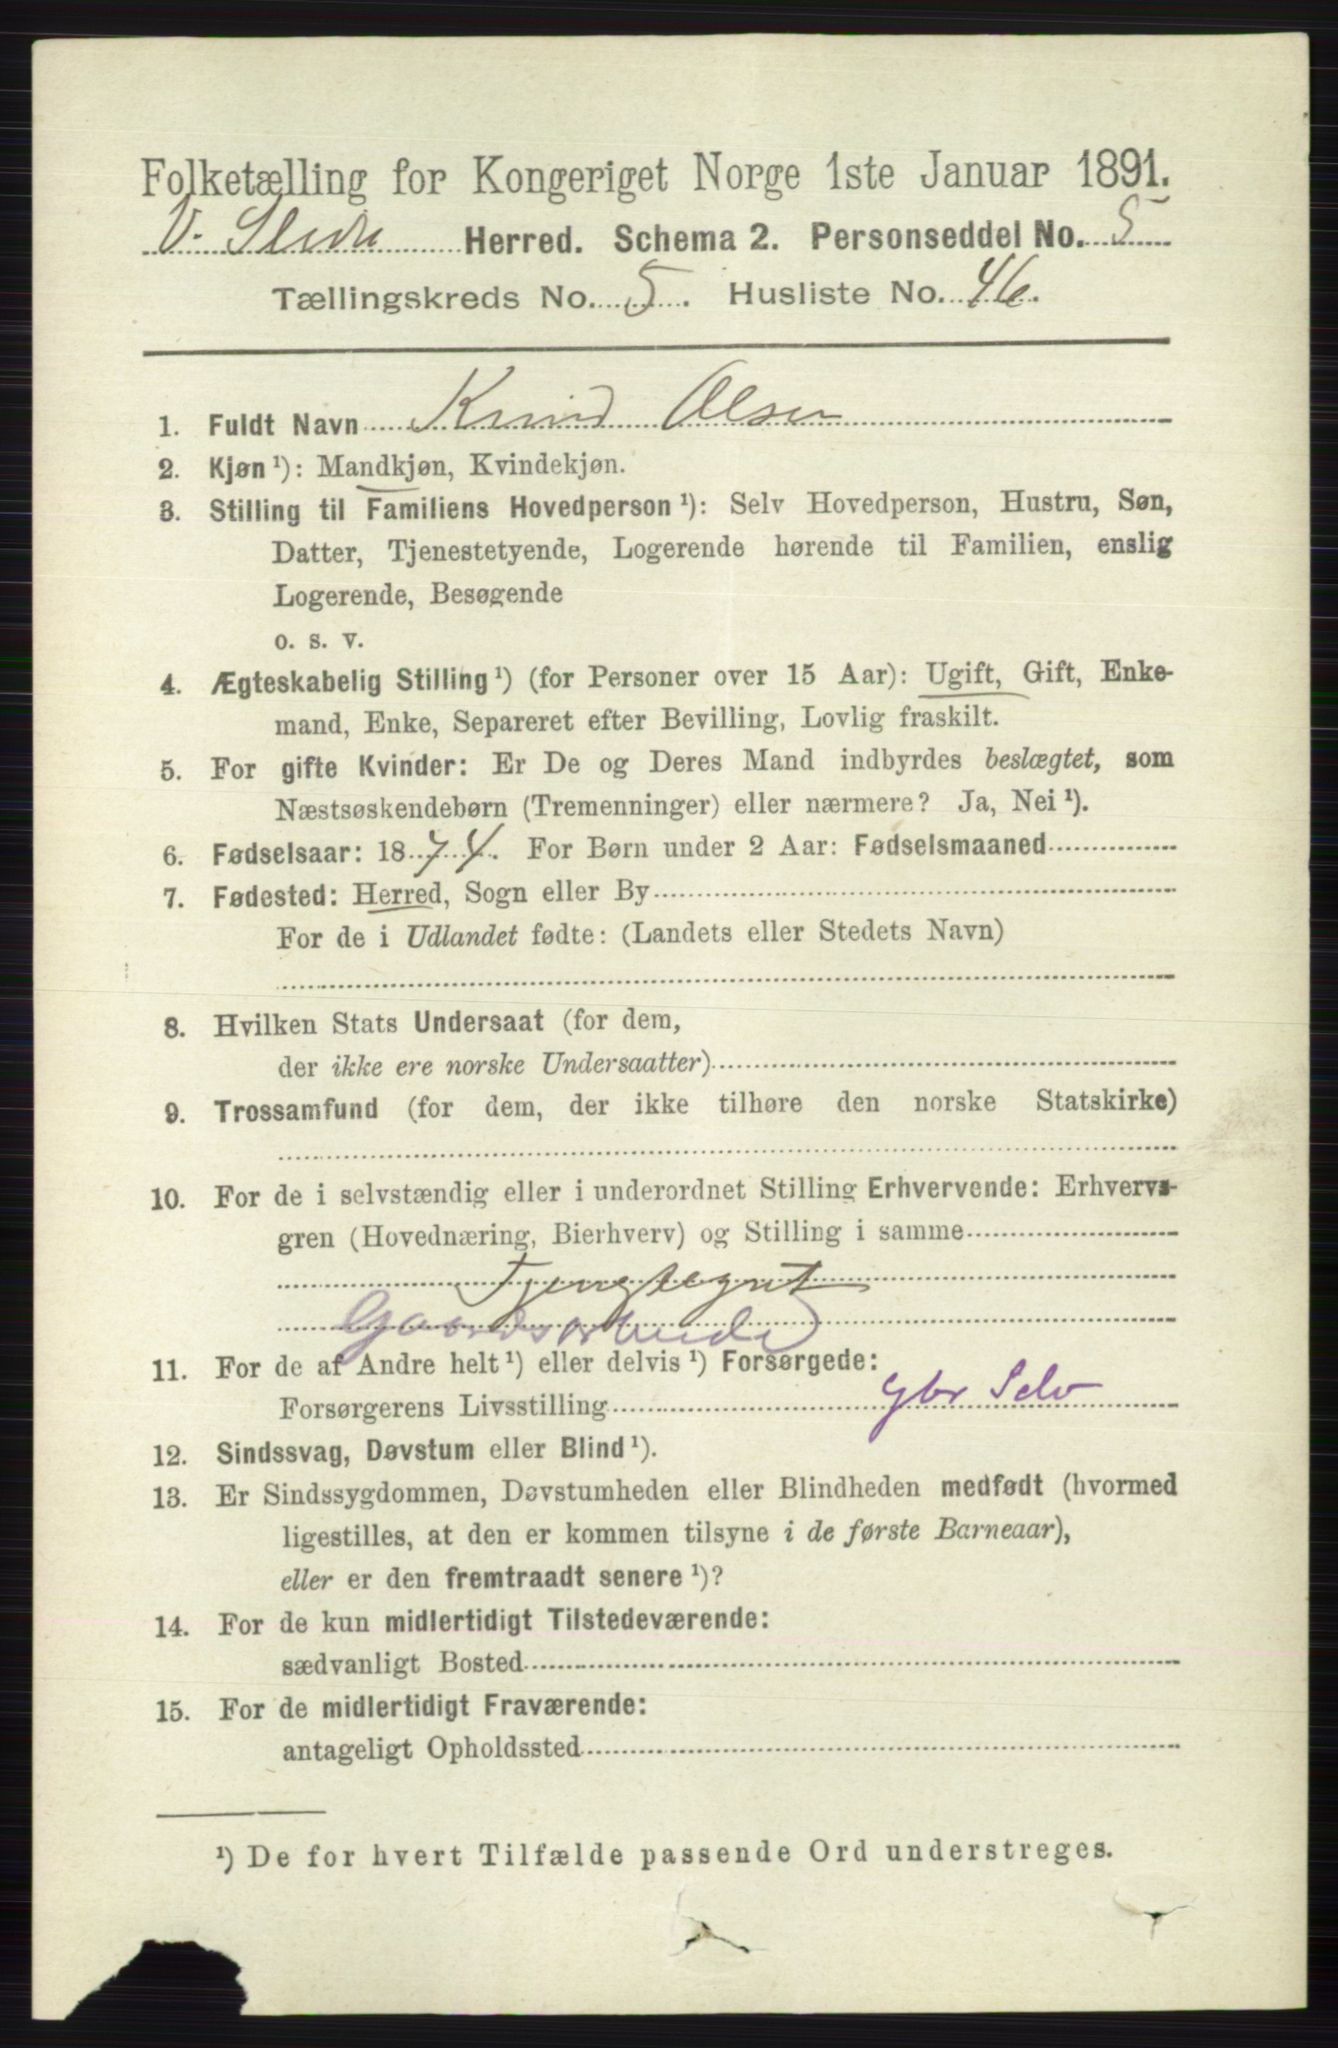 Folketælling for Kongeriget Norge 1ste Januar 1891.
V. Slidre Herred. Schema 2. Personseddel No. 5
Tællingskreds No. 5. Husliste No. 46.
1. Fuldt Navn Knud Olsen
2. Kjøn ¹): Mandkjøn, Kvindekjøn.
3. Stilling til Familiens Hovedperson ¹): Selv Hovedperson, Hustru, Søn,
Datter, Tjenestetyende, Logerende hørende til Familien, enslig
Logerende, Besøgende
o. s. v.
4. Ægteskabelig Stilling ¹) (for Personer over 15 Aar): Ugift, Gift, Enke-
mand, Enke, Separeret efter Bevilling, Lovlig fraskilt.
5. For gifte Kvinder: Er De og Deres Mand indbyrdes beslægtet, som
Næstsøskendebørn (Tremenninger) eller nærmere? Ja, Nei ¹).
6. Fødselsaar: 1874. For Børn under 2 Aar: Fødselsmaaned
7. Fødested: Herred, Sogn eller By
For de i Udlandet fødte: (Landets eller Stedets Navn)
8. Hvilken Stats Undersaat (for dem,
der ikke ere norske Undersaatter)
9. Trossamfund (for dem, der ikke tilhøre den norske Statskirke)
10. For de i selvstændig eller i underordnet Stilling Erhvervende: Erhvervs-
gren (Hovednæring, Bierhverv) og Stilling i samme
Gaardsarbeide
11. For de af Andre helt ¹) eller delvis ¹) Forsørgede:
Forsørgerens Livsstilling Gbr Selv
12. Sindssvag, Døvstum eller Blind ¹).
13. Er Sindssygdommen, Døvstumheden eller Blindheden medfødt (hvormed
ligestilles, at den er kommen tilsyne i de første Barneaar),
eller er den fremtraadt senere ¹)?
14. For de kun midlertidigt Tilstedeværende:
sædvanligt Bosted
15. For de midlertidigt Fraværende:
antageligt Opholdssted
¹) De for hvert Tilfælde passende Ord understreges.